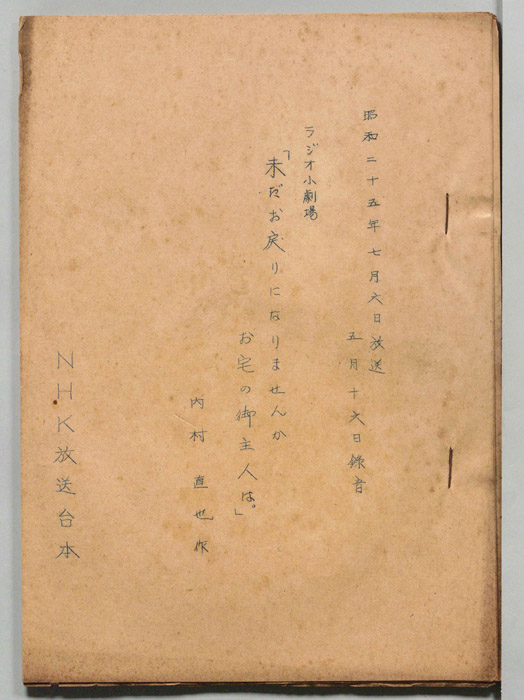 昭和二十五年七月六日放送
五月十六日録音
ラジオ小劇場
「未だお戻りになりませんか
お宅の御主人は。」
内村直也作
NHK放送台本